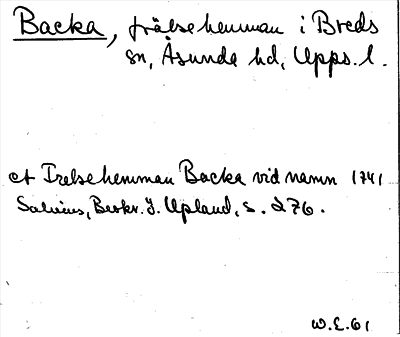 Backa, frälsehemman i Breds
sn, Åsunda hd, Upps. l.
et Frelsehemman Backa vid namn 1741
Salvius, Beskr. ö. Upland, s. 276.
W.E. 61